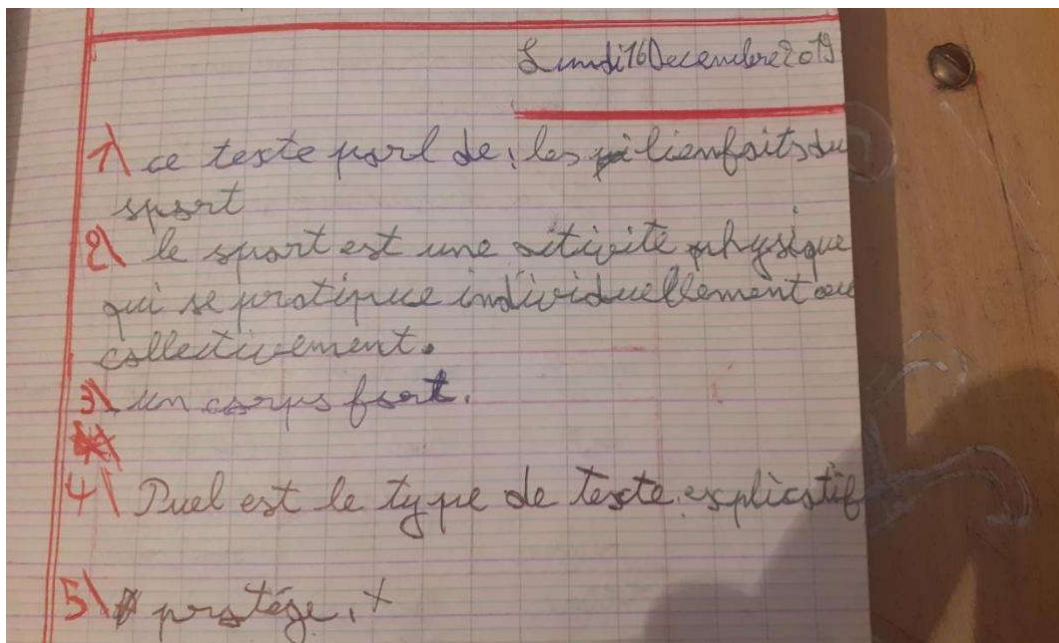 Lundi 16 Decembre 2019
1\ ce texte parl de: les bienfaits du
sport
2\ le sport est une activité physique
qui se pratique individuellement ou
collectivement.
3\ un corps fort.
4\ Quel est le type de texte explicatif
5\ protége. +